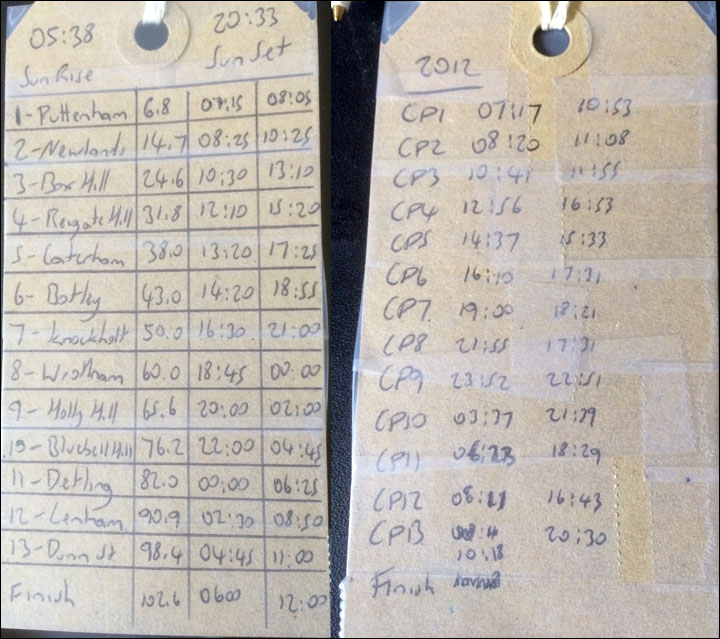 05:38 20:33
Sun Rise Sun Set
1-Puttenham 6.8 07:15 08:05
2-Newlands 14.7 08:25 10:25
3-Box Hill 24.6 10:30 13:10
4-Reigate Hill 31.8 12:10 15:20
5-Caterham 38.0 13:20 17:25
6-Botley 43.0 14:20 18:55
7-Knockholt 50.0 16:30 21:00
8-Wrotham 60.0 18:45 00:00
9-Holly Hill 65.6 20:00 02:00
10-Bluebell Hill 76.2 22:00 04:45
11-Detling 82.0 00:00 06:25
12-Lenham 90.9 02:30 08:50
13-Dunn St 98.4 04:45 11:00
Finish 102.6 0600 12:00
2012
CP1 07:17 10:53
CP2 08:20 11:08
CP3 10:41 11:55
CP4 12:56 16:53
CP5 14:37 15:33
CP6 16:10 17:31
CP7 19:00 18:21
CP8 21:55 17:31
CP9 23:52 22:51
CP10 03:37 21:39
CP11 18:29
CP12 08:11 16:43
CP13 20:30
10:18
Finish